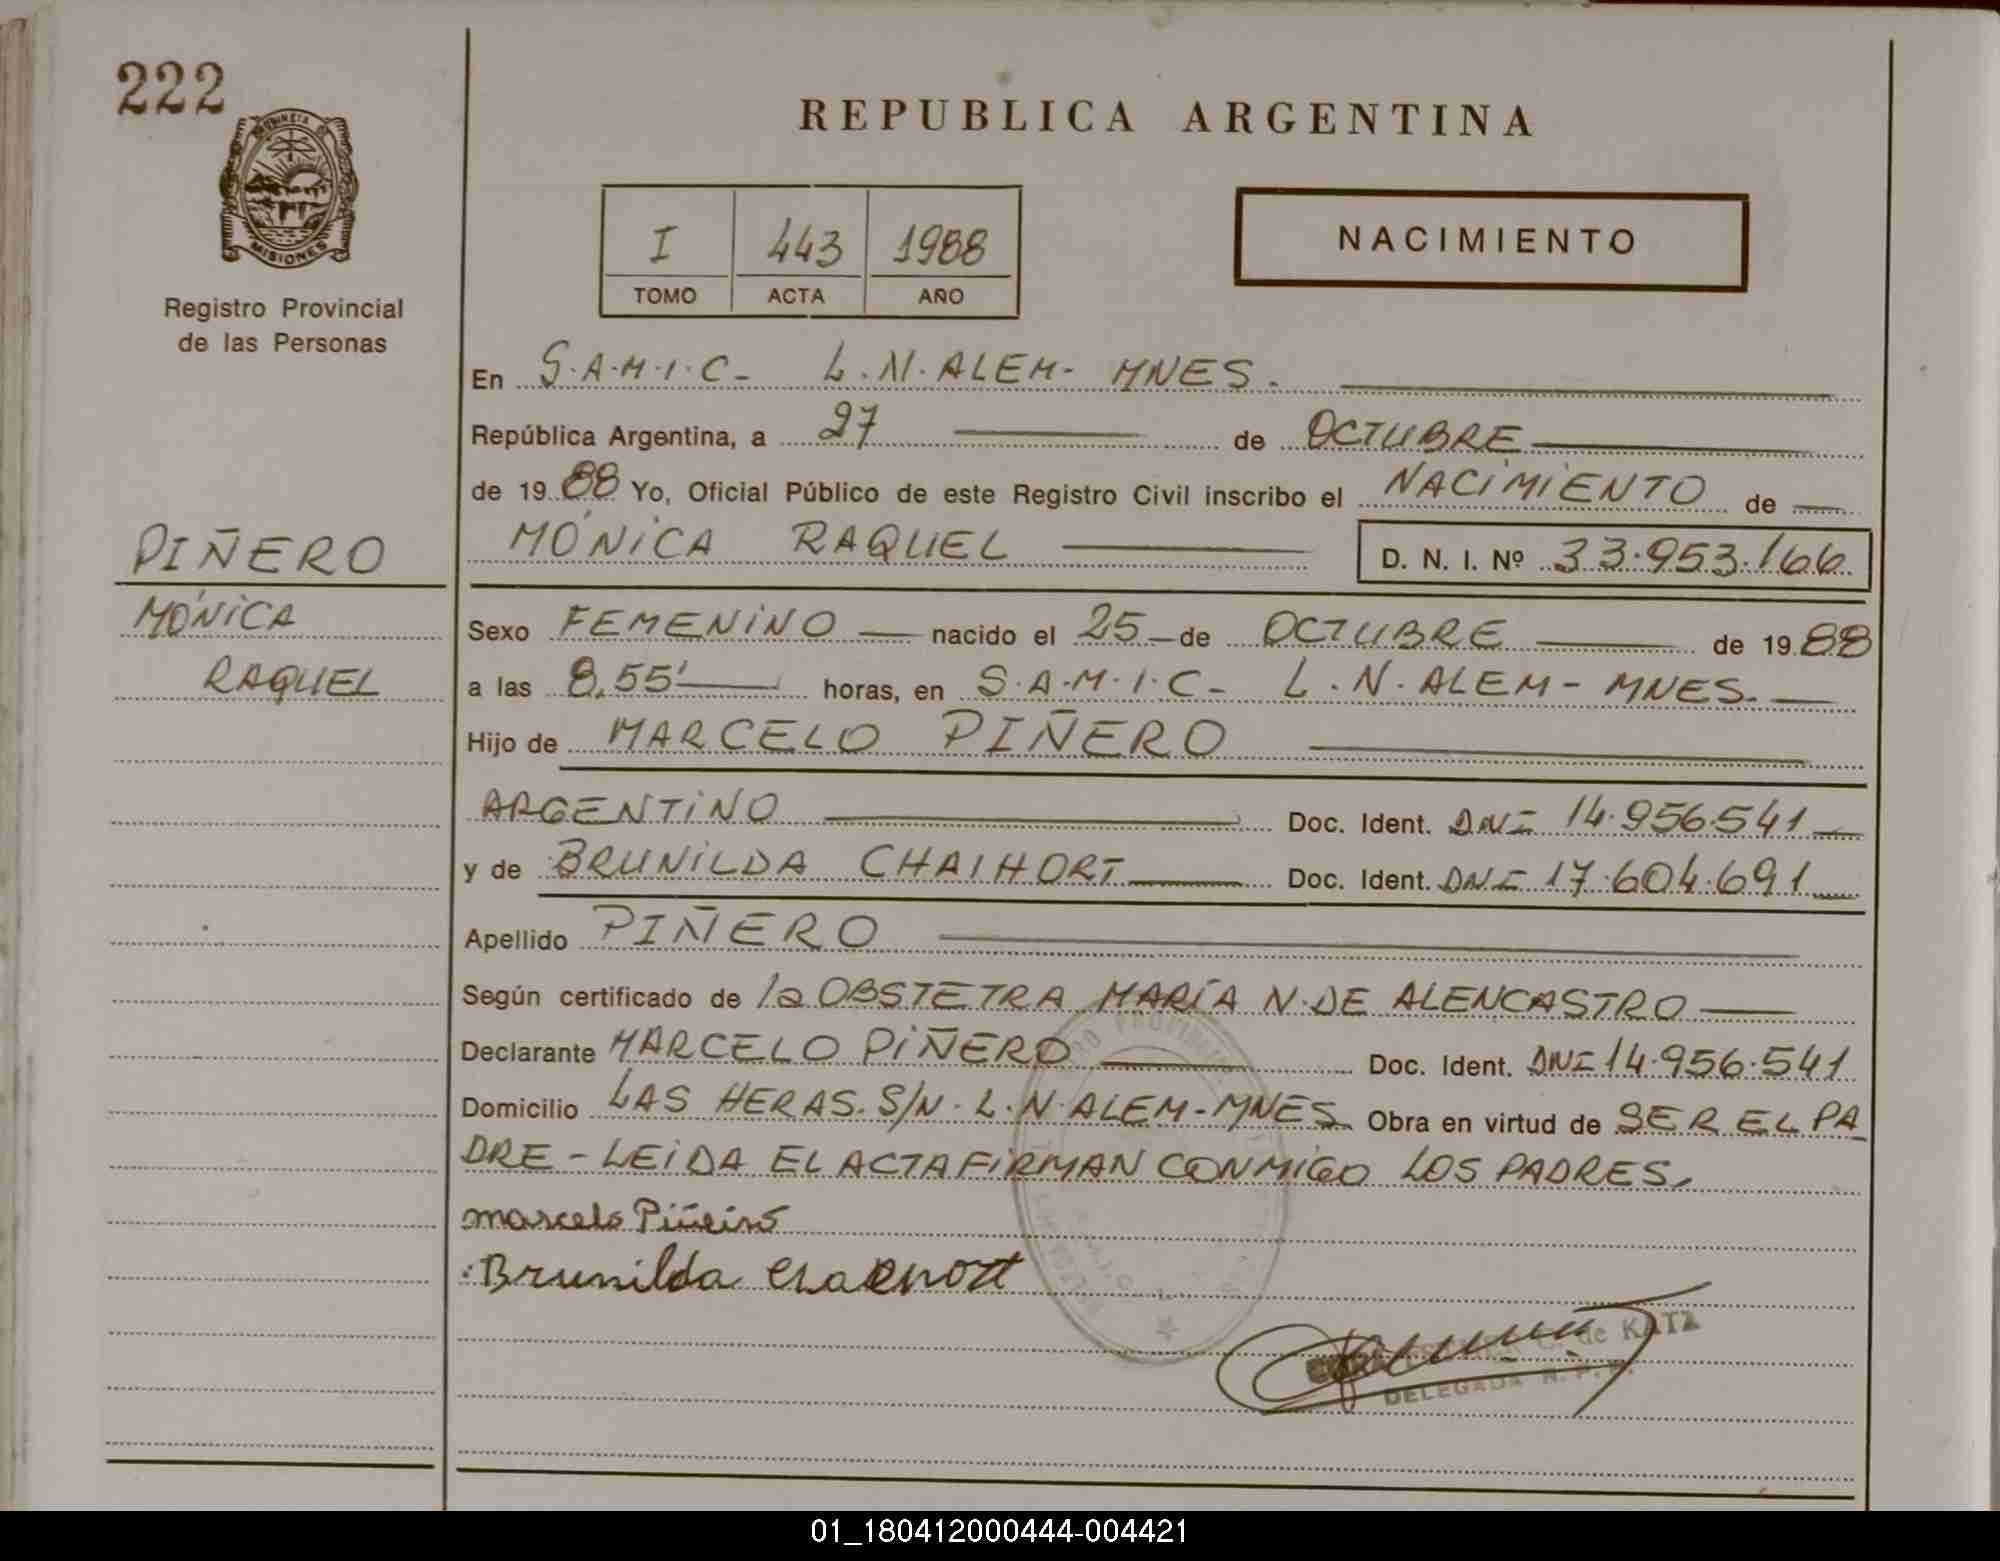 222
REPUBLICA ARGENTINA
PROVINCIA DE
MISIONES
Registro Provincial
de las Personas
I 443 1988
TOMO ACTA AÑO
NACIMIENTO
En S.A.M.I.C- L.N.ALEM- MNES.
República Argentina, a 27 de OCTUBRE
de 1988 Yo, Oficial Público de este Registro Civil inscribo el NACIMIENTO de
MÓNICA RAQUEL D. N. I. Nº 33.953.166
PIÑERO
MÓNICA
RAQUEL
Sexo FEMENINO nacido el 25 de OCTUBRE de 1988
a las 8,55' horas, en S.A.M.I.C- L.N.ALEM- MNES.
Hijo de MARCELO PIÑERO
ARGENTINO Doc. Ident. DNI 14.956.541
y de BRUNILDA CHAIHORT Doc. Ident. DNI 17.604.691
Apellido PIÑERO
Según certificado de la OBSTETRA MARÍA N. DE ALENCASTRO
Declarante MARCELO PIÑERO Doc. Ident. DNI 14.956.541
Domicilio LAS HERAS. S/N. L.N.ALEM-MNES Obra en virtud de SER EL PA
DRE - LEIDA EL ACTA FIRMAN CONMIGO LOS PADRES.
marcelo Piñeiro
Brunilda
de KATZ
DELEGADA R. P. P.
01_180412000444-004421